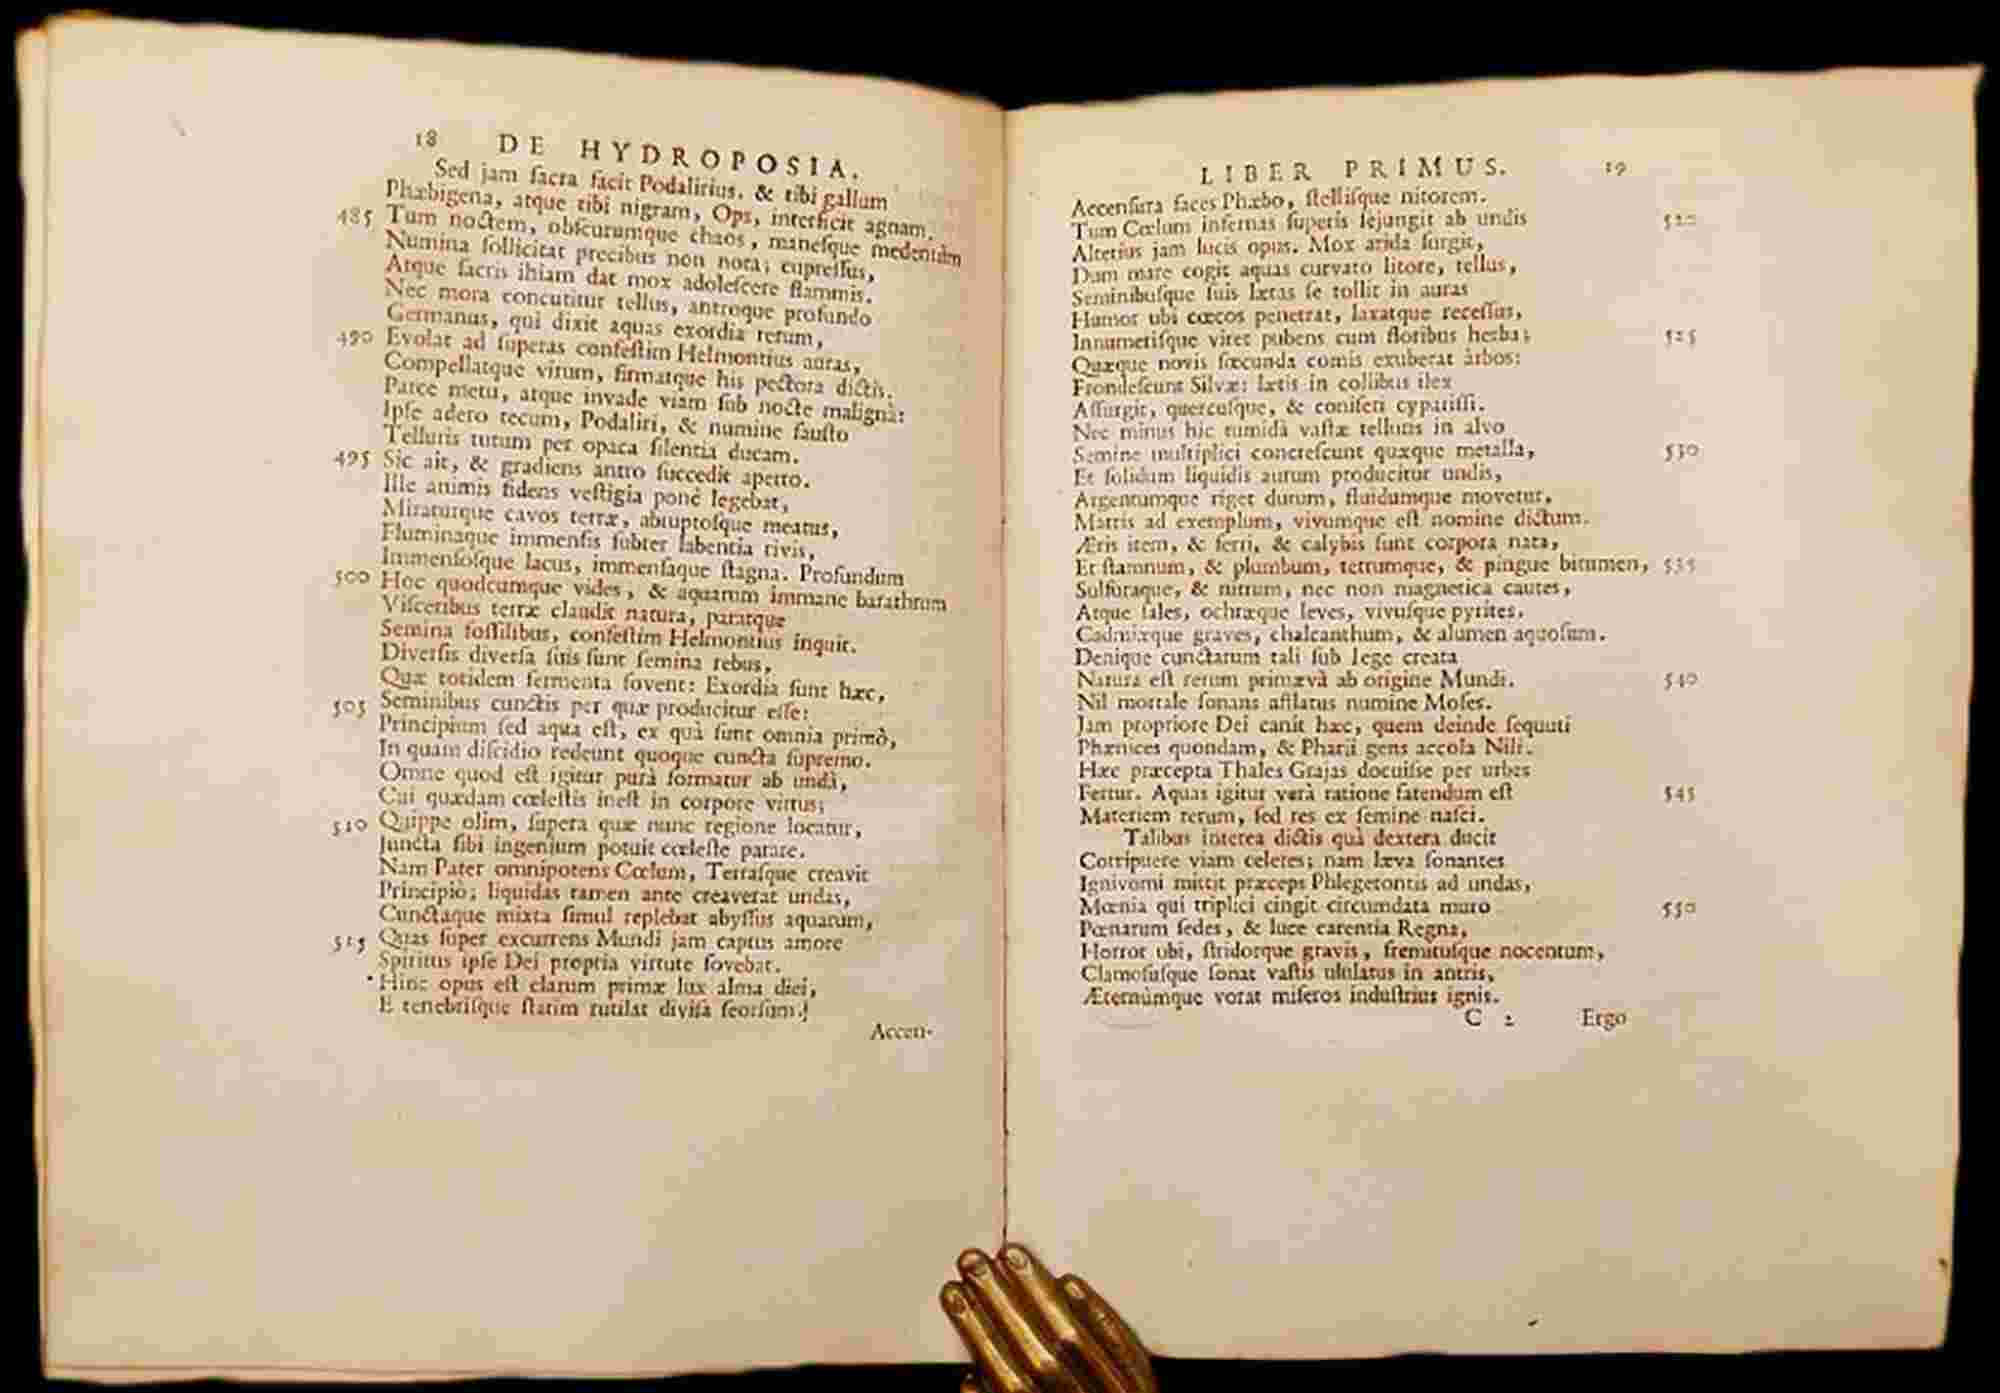 18 DE HYDROPOSIA.
Sed jam ſacra facit Podalirius, & tibi gallum
Phæbigena, atque tibi nigram, Ops, interficit agnam.
485 Tum noctem, obſcurumque chaos, maneſque medentûm
Numina ſollicitat precibus non nota; cupreſſus,
Atque ſacris ihiam dat mox adoleſcere flammis.
Nec mora concutitur tellus, antroque profundo
Germanus, qui dixit aquas exordia rerum,
490 Evolat ad ſuperas confeſtim Helmontius auras,
Compellatque virum, firmatque his pectora dictis.
Parce metu, atque invade viam ſub nocte malignâ:
Ipſe adero tecum, Podaliri, & numine fauſto
Telluris tutum per opaca ſilentia ducam.
495 Sic ait, & gradiens antro ſuccedit aperto.
Ille animis fidens veſtigia ponè legebat,
Miraturque cavos terræ, abruptoſque meatus,
Fluminaque immenſis ſubter labentia rivis,
Immenſoſque lacus, immenſaque ſtagna. Profundum
500 Hoc quodcumque vides, & aquarum immane barathrum
Viſceribus terræ claudit natura, paratque
Semina foſſilibus, confeſtim Helmontius inquit.
Diverſis diverſa ſuis ſunt ſemina rebus,
Quæ totidem fermenta fovent: Exordia ſunt hæc,
505 Seminibus cunctis per quæ producitur eſſe:
Principium ſed aqua eſt, ex quâ ſunt omnia primò,
In quam diſcidio redeunt quoque cuncta ſupremo.
Omne quod eſt igitur purâ formatur ab undâ,
Cui quædam cœleſtis ineſt in corpore virtus;
510 Quippe olim, ſupera quæ nunc regione locatur,
Juncta ſibi ingenium potuit cœleſte parare.
Nam Pater omnipotens Cœlum, Terraſque creavit
Principiò; liquidas tamen ante creaverat undas,
Cunctaque mixta ſimul replebat abyſſus aquarum,
515 Quas ſuper excurrens Mundi jam captus amore
Spiritus ipſe Dei propria virtute fovebat.
Hinc opus eſt clarum primæ lux alma diei,
E tenebriſque ſtatim rutilat diviſa ſeorſum!
Accen-
LIBER PRIMUS. 19
Accenſura faces Phæbo, ſtelliſque nitorem.
Tum Cœlum infernas ſuperis ſejungit ab undis 520
Alterius jam lucis opus. Mox arida ſurgit,
Dum mare cogit aquas curvato litore, tellus,
Seminibuſque ſuis lætas ſe tollit in auras
Humor ubi cœcos penetrat, laxatque receſſus,
Innumeriſque viret pubens cum floribus herba; 525
Quæque novis fœcunda comis exuberat àrbos:
Frondeſcunt Silvæ: lætis in collibus ilex
Aſſurgit, quercuſque, & coniferi cypariſſi.
Nec minus hic tumidâ vaſtæ telluris in alvo
Semine multiplici concreſcunt quæque metalla, 530
Et ſolidum liquidis aurum producitur undis,
Argentumque riget durum, fluidumque movetur,
Matris ad exemplum, vivumque eſt nomine dictum.
Æris item, & ferri, & calybis ſunt corpora nata,
Et ſtamnum, & plumbum, tetrumque, & pingue bitumen, 535
Sulfuraque, & nitrum, nec non magnetica cautes,
Atque ſales, ochræque leves, vivuſque pyrites,
Cadmiæque graves, chalcanthum, & alumen aquoſum.
Denique cunctarum tali ſub lege creata
Natura eſt rerum primævâ ab origine Mundi. 540
Nil mortale ſonans afflatus numine Moſes.
Jam propriore Dei canit hæc, quem deinde ſequuti
Phænices quondam, & Pharii gens accola Nili.
Hæc præcepta Thales Grajas docuiſſe per urbes
Fertur. Aquas igitur verâ ratione fatendum eſt 545
Materiem rerum, ſed res ex ſemine naſci.
Talibus interea dictis quà dextera ducit
Corripuere viam celeres; nam læva ſonantes
Ignivomi mittit præceps Phlegetontis ad undas,
Mœnia qui triplici cingit circumdata muro 550
Pœnarum ſedes, & luce carentia Regna,
Horror ubi, ſtridorque gravis, fremituſque nocentum,
Clamoſuſque ſonat vaſtis ululatus in antris,
Æternùmque vorat miſeros induſtrius ignis.
C 2 Ergo